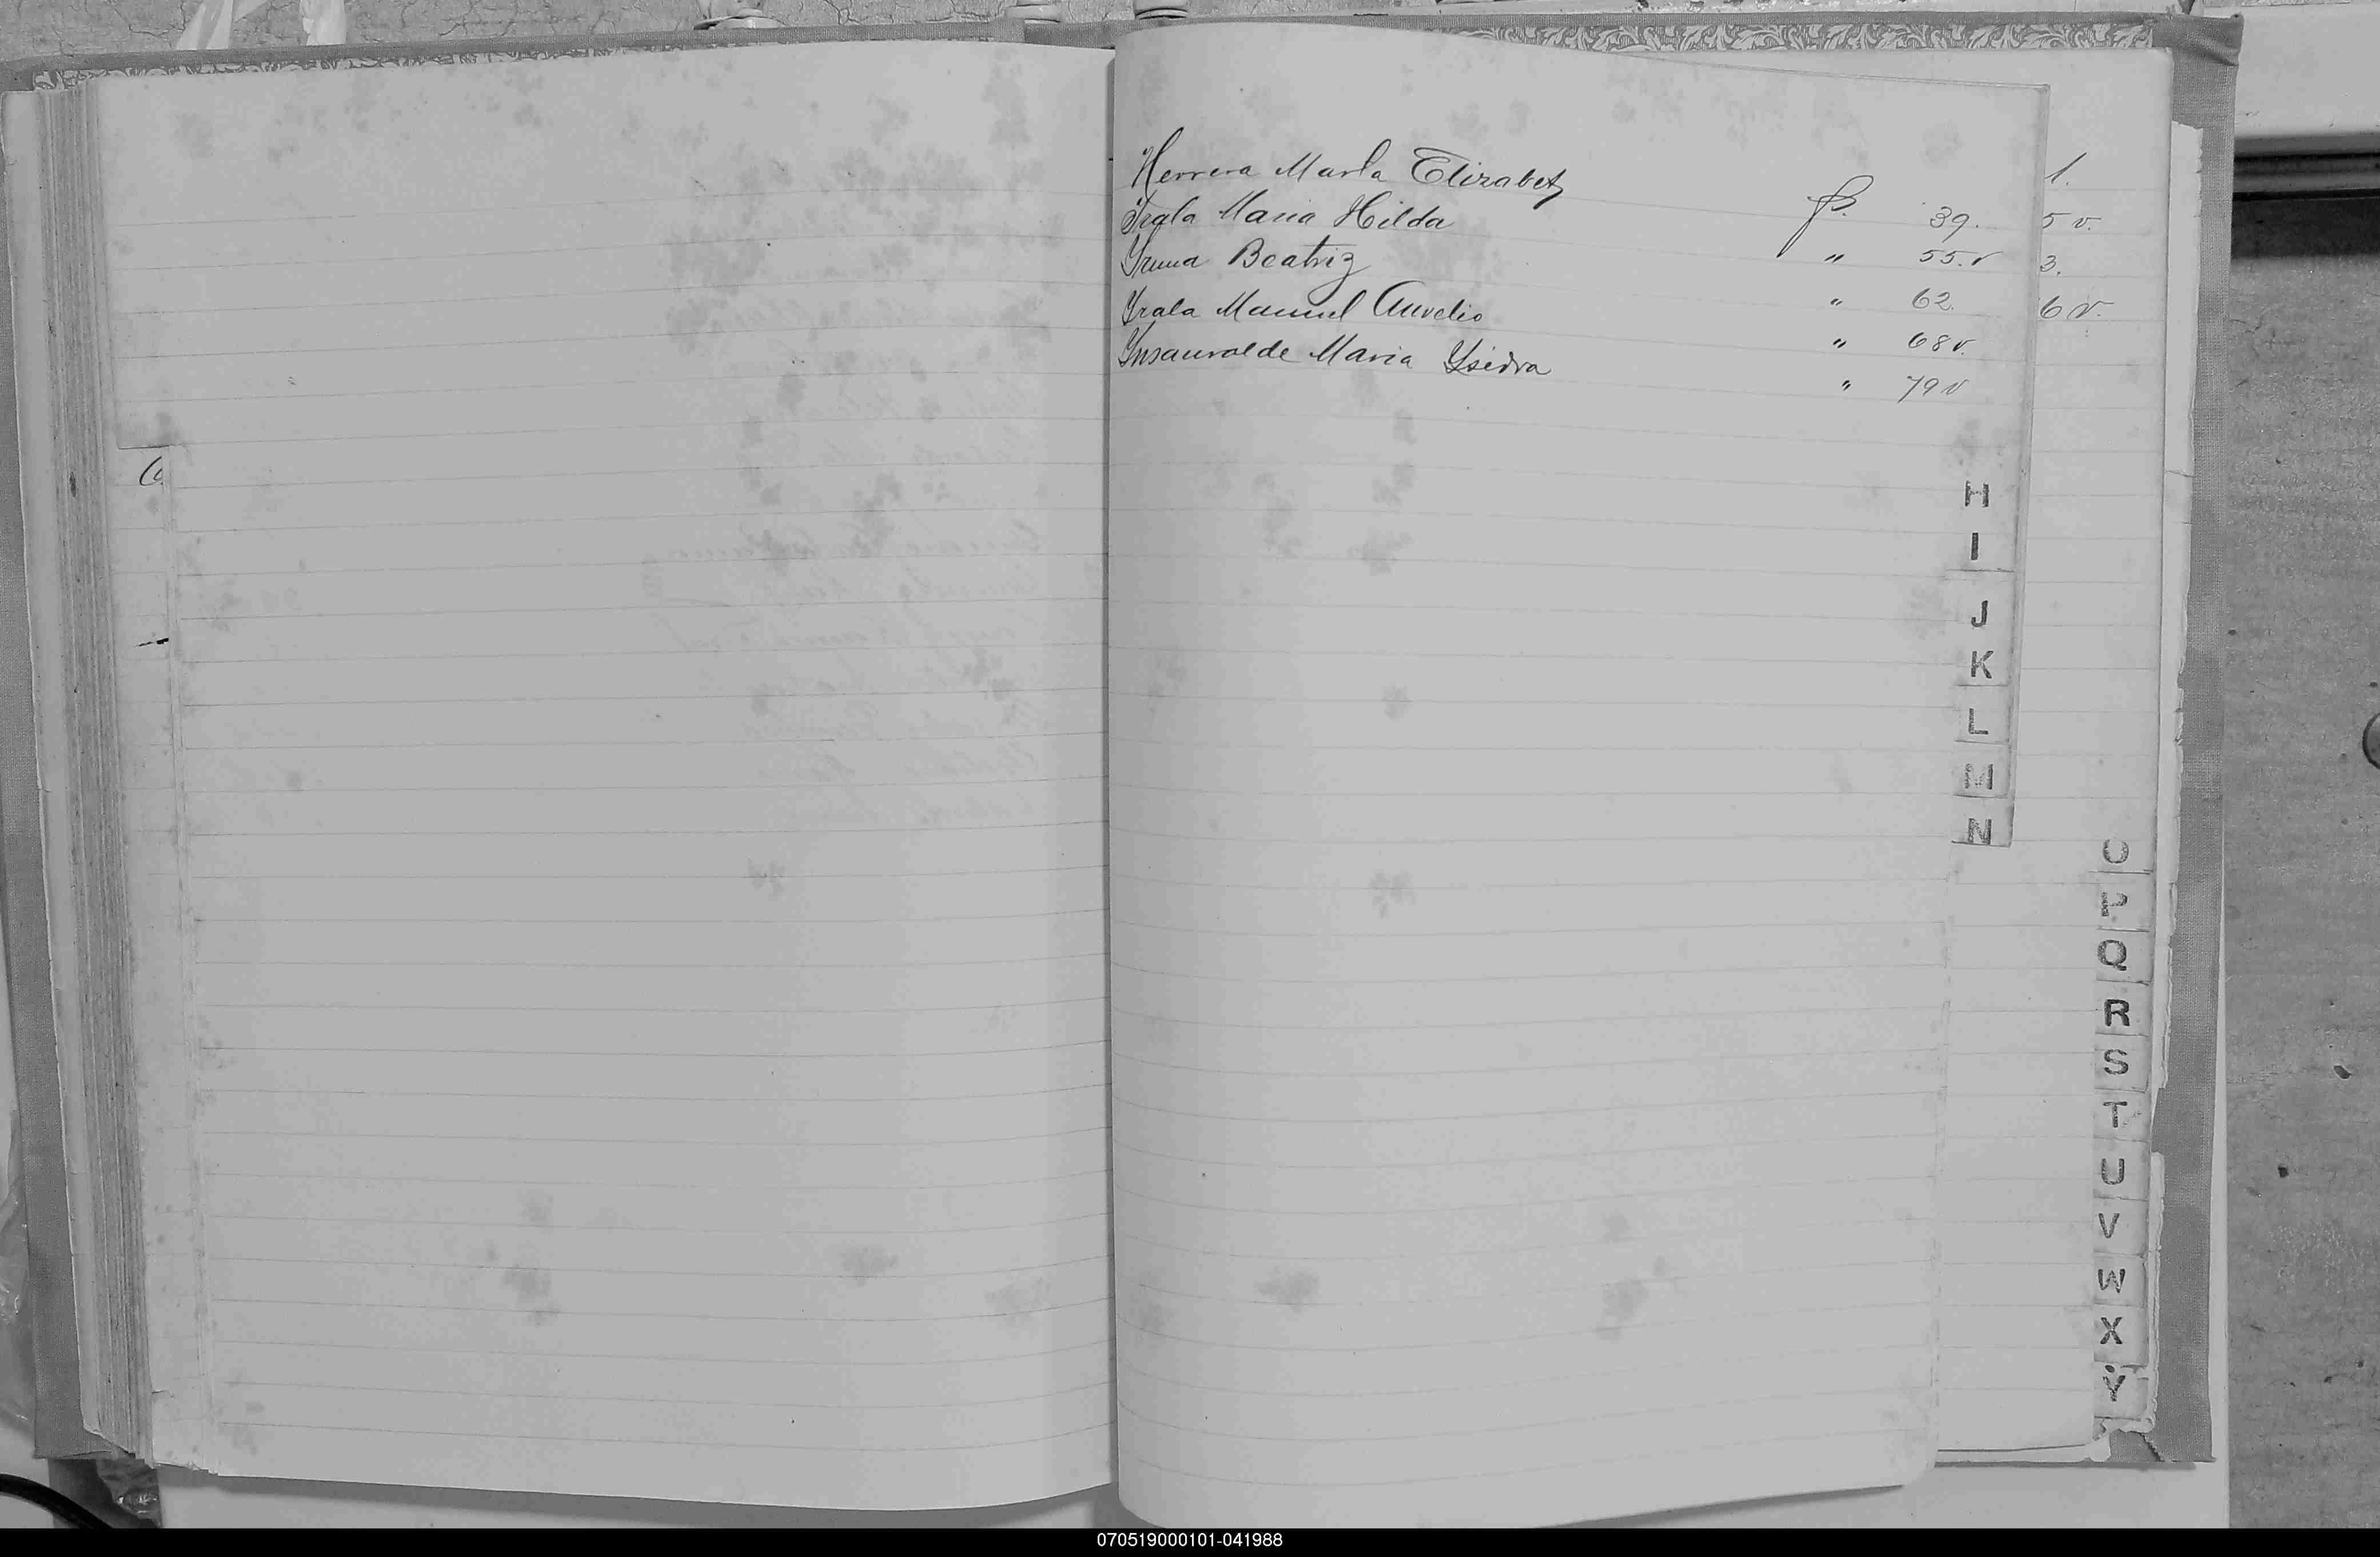 Herrera Marla Elizabet fs. 39.
Irala Maria Hilda " 55.v
Beatriz " 62.
Yrala Manuel Aurelio " 68v.
Ynsaurralde Maria Ysidra " 79v
1.
5 v.
3.
6 v.
H
I
J
K
L
M
N
O
P
Q
R
S
T
U
V
W
X
Y
070519000101-041988